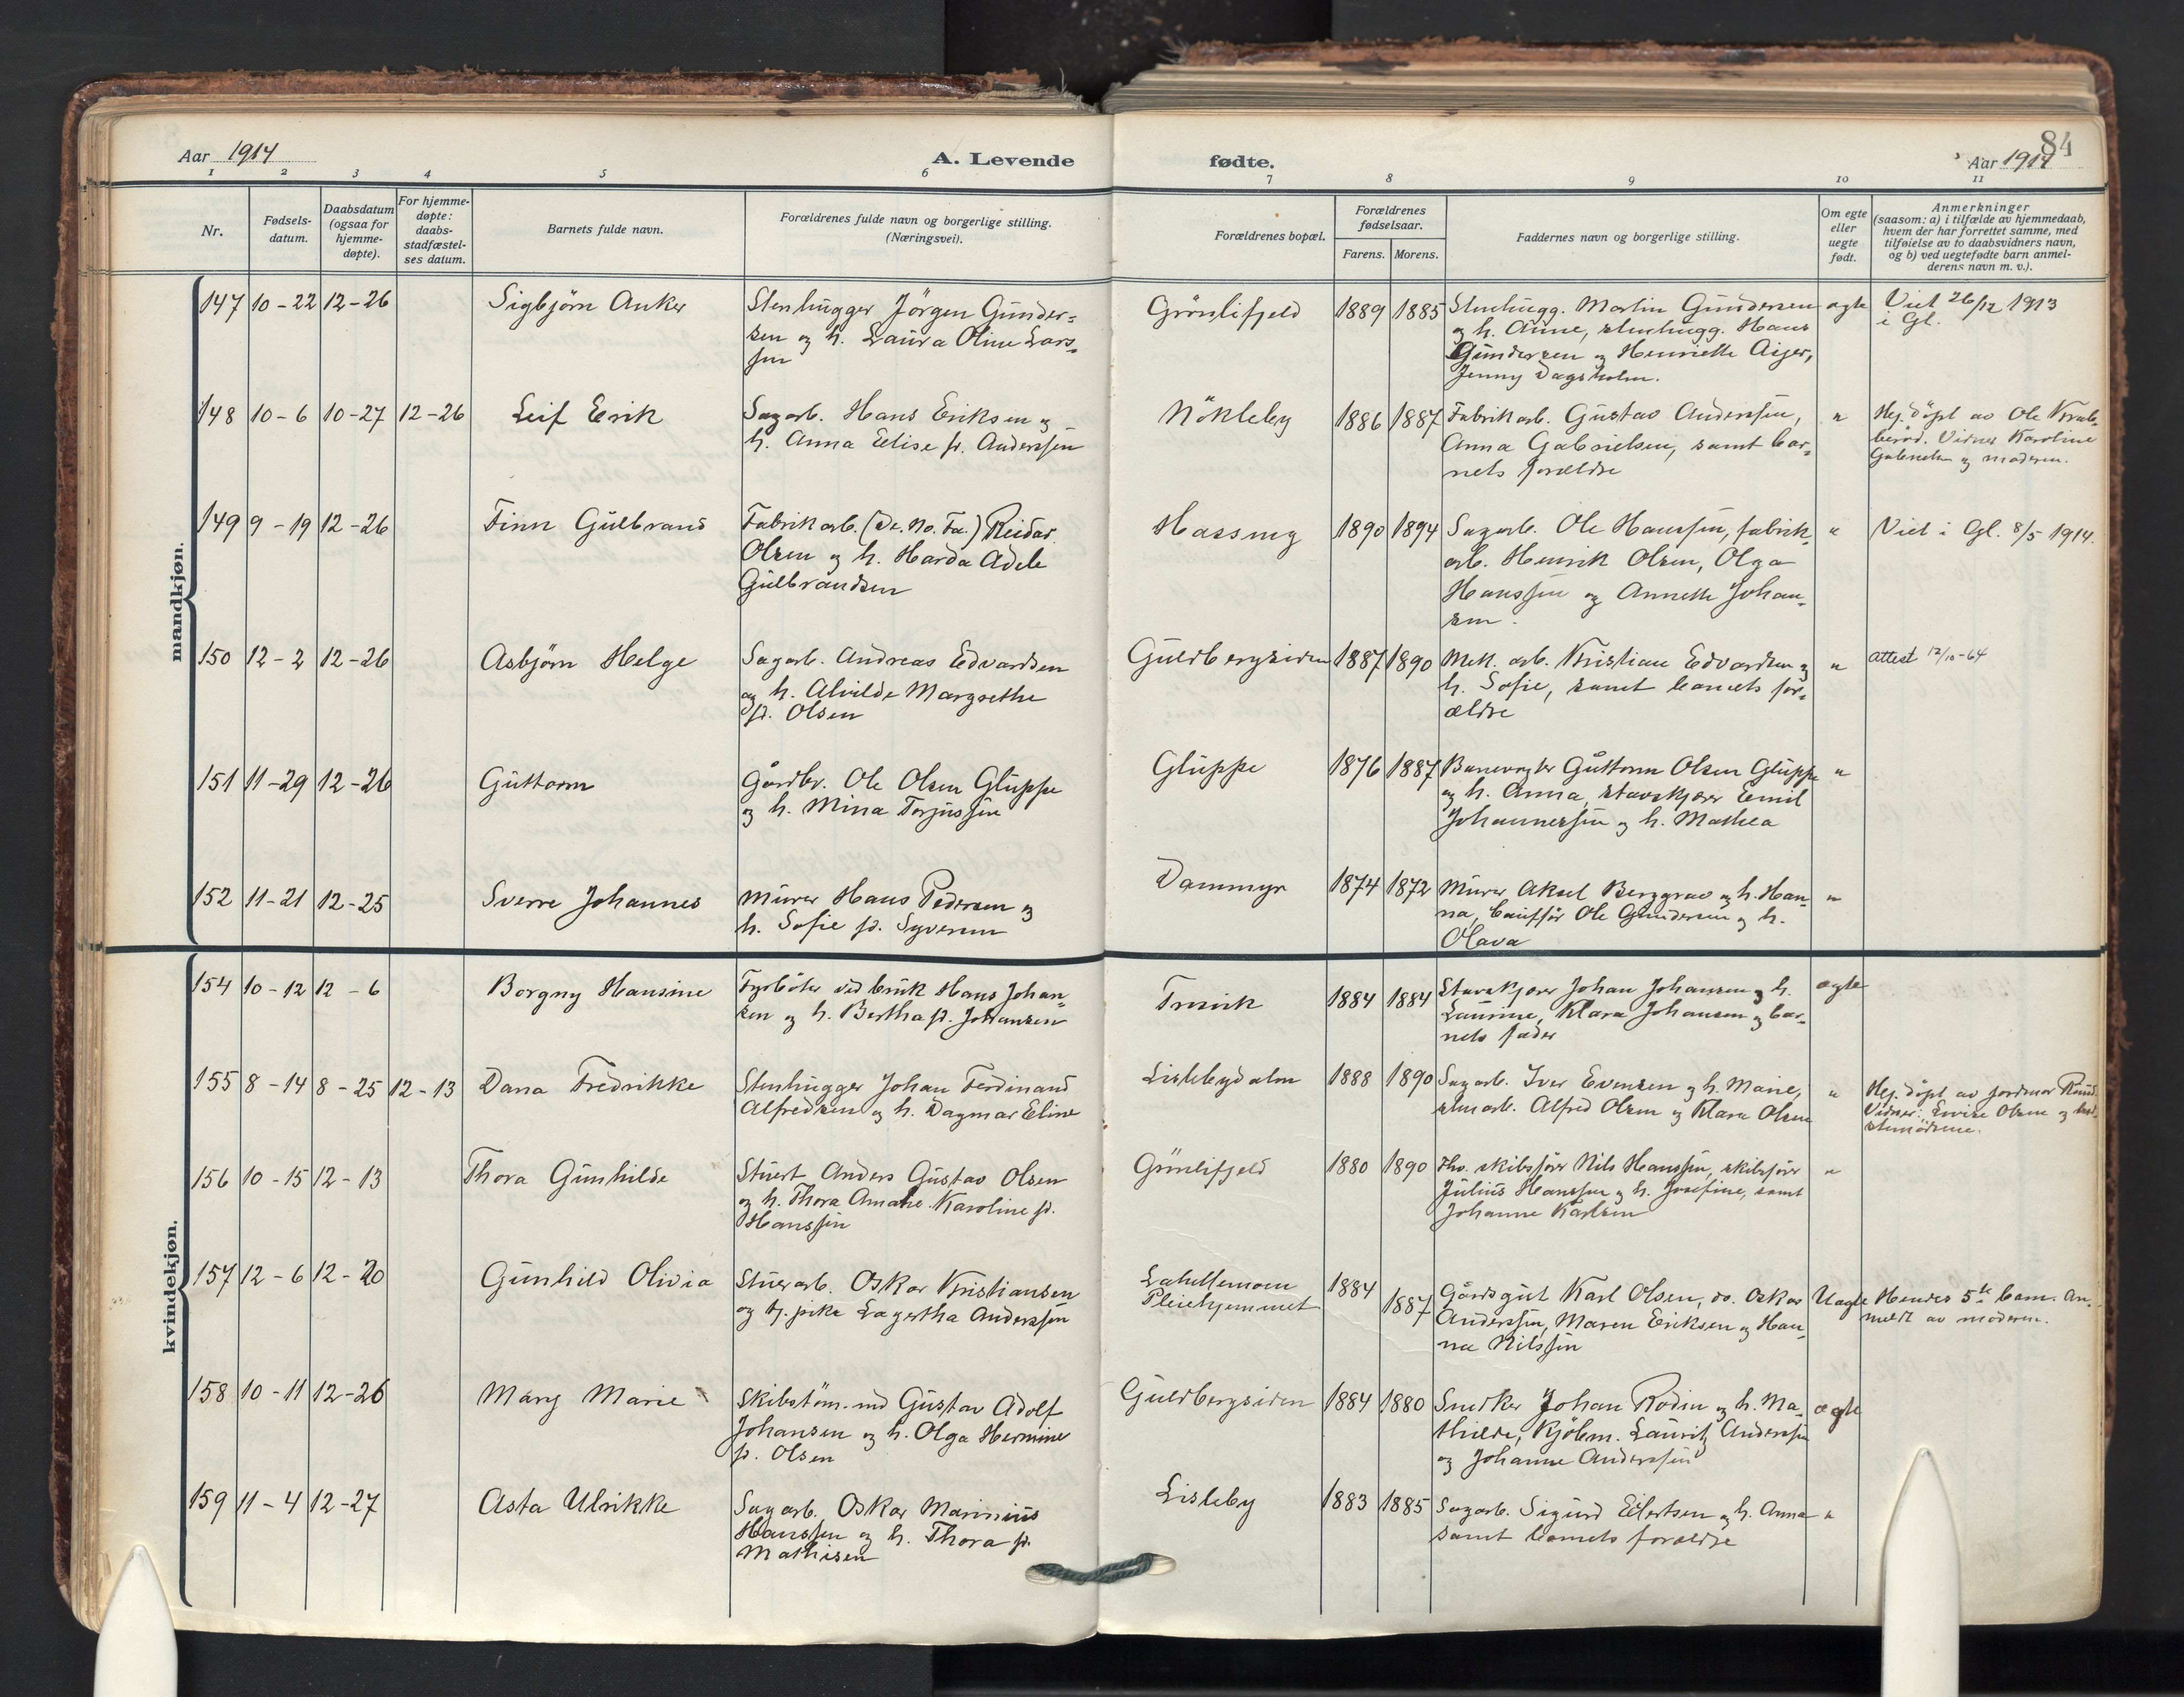 84
Aar 1914
A. Levende
fødte.
Aar 1914
1 2 3 4 5 6 7 8 9 10 11
Nr.
Fødsels-
datum.
Daabsdatum
(ogsaa for
hjemme-
døpte).
For hjemme-
døpte:
daabs-
stadfæstel-
ses datum.
Barnets fulde navn.
Forældrenes fulde navn og borgerlige stilling.
(Næringsvei).
Forældrenes bopæl.
Forældrenes
fødselsaar.
Farens. Morens.
Faddernes navn og borgerlige stilling.
Om egte
eller
uegte
født.
Anmerkninger
(saasom: a) i tilfælde av hjemmedaab,
hvem der har forrettet samme, med
tilføielse av to daabsvidners navn,
og b) ved uegtefødte barn anmel-
derens navn m. v.).
mandkjøn.
147 10-22 12-26 Sigbjörn Anker
Stenhugger Jörgen Gunder-
sen og h. Laura Oline Lars-
sen
Grönlifjeld 1889 1885
Stenhugg. Martin Gundersen
og h. Anne, stenhugg. Hans
Gundersen og Henriette
Jenny Dagsholm.
ægte
Viet 26/12 1913
i Gl.
148 10-6 10-27 12-26 Leif Erik
Sagarb. Hans Eriksen og
h. Anna Elise f. Anderssen
Nökleby 1886 1887
Fabrikarb. Gustav Anderssen,
Anna Gabrielsen, samt bar-
nets forældre
"
Hj. döpt av Ole
Vidner Karoline
Gabrielsen og moderen.
149 9-19 12-26 Finn Gulbrand
Fabrikarb. (De. No. Fa.) Reidar
Olsen og h. Harda Adele
Gulbrandsen
Hassing 1890 1894
Sagarb. Ole Hanssen, fabrik-
arb. Henrik Olsen, Olga
Hanssen og Annette Johan-
sen.
"
Viet i Gl. 8/5 1914.
150 12-2 12-26 Asbjørn Helge
Sagarb. Andreas Edvardsen
og h. Alvilde Margrethe
f. Olsen
Guldbergsiden 1887 1890
Mek. arb. Kristian Edvardsen og
h. Sofie, samt barnets for-
ældre
"
attest 12/10-64
151 11-29 12-26 Guttorm
Gårdbr. Ole Olsen Gluppe
og h. Mina Torjussen
Gluppe 1876 1887
Banevogter Guttorm Olsen Gluppe
og h. Anna, stavskjærer Emil
Johannessen og h. Mathea
"
152 11-21 12-25 Sverre Johannes
Murer Hans Pedersen og
h. Sofie f. Syversen
Dammyr 1874 1872
Murer Aksel Berggrav og h. Han-
na, Ole Gundersen og h.
Olava
"
kvindekjøn.
154 10-12 12-6 Borgny Hansine
Fyrböter ved bruk Hans Johan-
sen og h. Bertha f. Johansen
1884 1884
Stavskjærer Johan Johansen og h.
Laurine, Klara Johansen og bar-
nets fader
ægte
155 8-14 8-25 12-13 Dana Fredrikke
Stenhugger Johan Ferdinand
Alfredsen og h. Dagmar Eline
Lislebydalen 1888 1890
Sagarb. Iver Evensen og h. Marie,
stenarb. Alfred Olsen og Klara Olsen
"
Hj. döpt av jordmor
Vidner: Olsen og
156 10-15 12-13 Thora Gunhilde
Stuert Anders Gustav Olsen
og h. Thora Amalie Karoline f.
Hanssen
Grönlifjeld 1880 1890
Fhv. skibsfører Nils Hanssen, skibsfører
Julius Hanssen og h. Josefine, samt
Johanne Karlsen
"
157 12-6 12-20 Gunhild Olivia
Stuerarb. Oskar Kristiansen
og tj. pike Lagertha Anderssen
Lahellemoen
Pleiehjemmet
1884 1887
Gårdsgut Karl Olsen, do. Oskar
Anderssen, Maren Eriksen og Han-
na Nilssen
Uægte
Hendes 5te barn. An-
meldt av moderen.
158 10-11 12-26 Mary Marie
Skibstöm.md Gustav Adolf
Johansen og h. Olga Hermine
f. Olsen
Guldbergsiden 1884 1880
Snedker Johan Rodin og h. Ma-
thilde, kjöbm. Lauritz Anderssen
og Johanne Anderssen
ægte
159 11-4 12-27 Asta Ulrikke
Sagarb. Oskar Marinius
Hanssen og h. Thora f.
Mathisen
Lisleby 1883 1885
Sagarb. Sigurd Eilertsen og h. Anna
samt barnets forældre
"